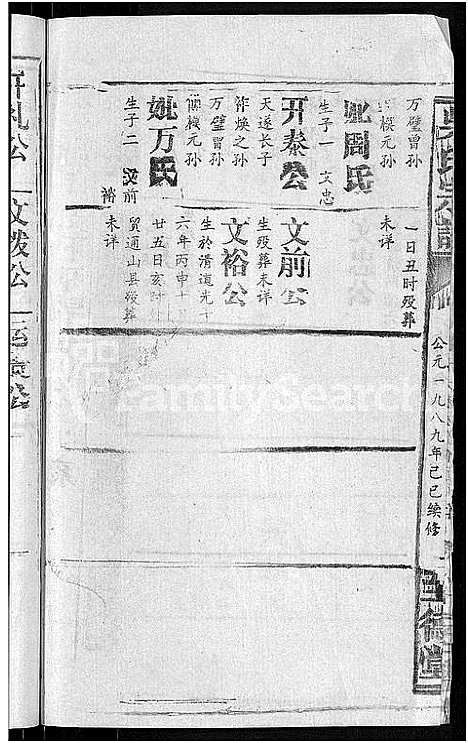 公元一九八九年己巳续修
万璧曾孙
模元孙
妣周氏
生子一 文忠
开泰公
天遂长子
作焕之孙
万璧曾孙
模元孙
妣万氏
生子二 文前
裕
一日丑时殁葬
未详
文前公
生殁葬未详
文裕公
生於清道光十
六年丙申十
廿五日亥时
贸通山县殁葬
未详
文拨公
FamilySearch